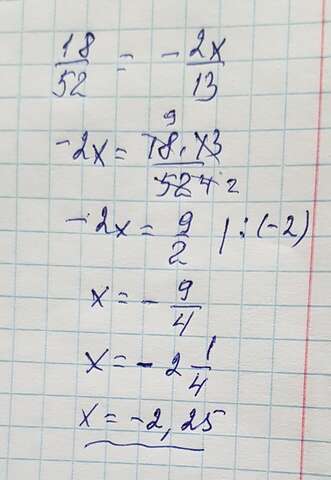 18/52 = - 2x/13
-2x = 18·13/52 9 4 2
-2x = 9/2 |:(-2)
x = - 9/4
x = - 2 1/4
x = -2,25